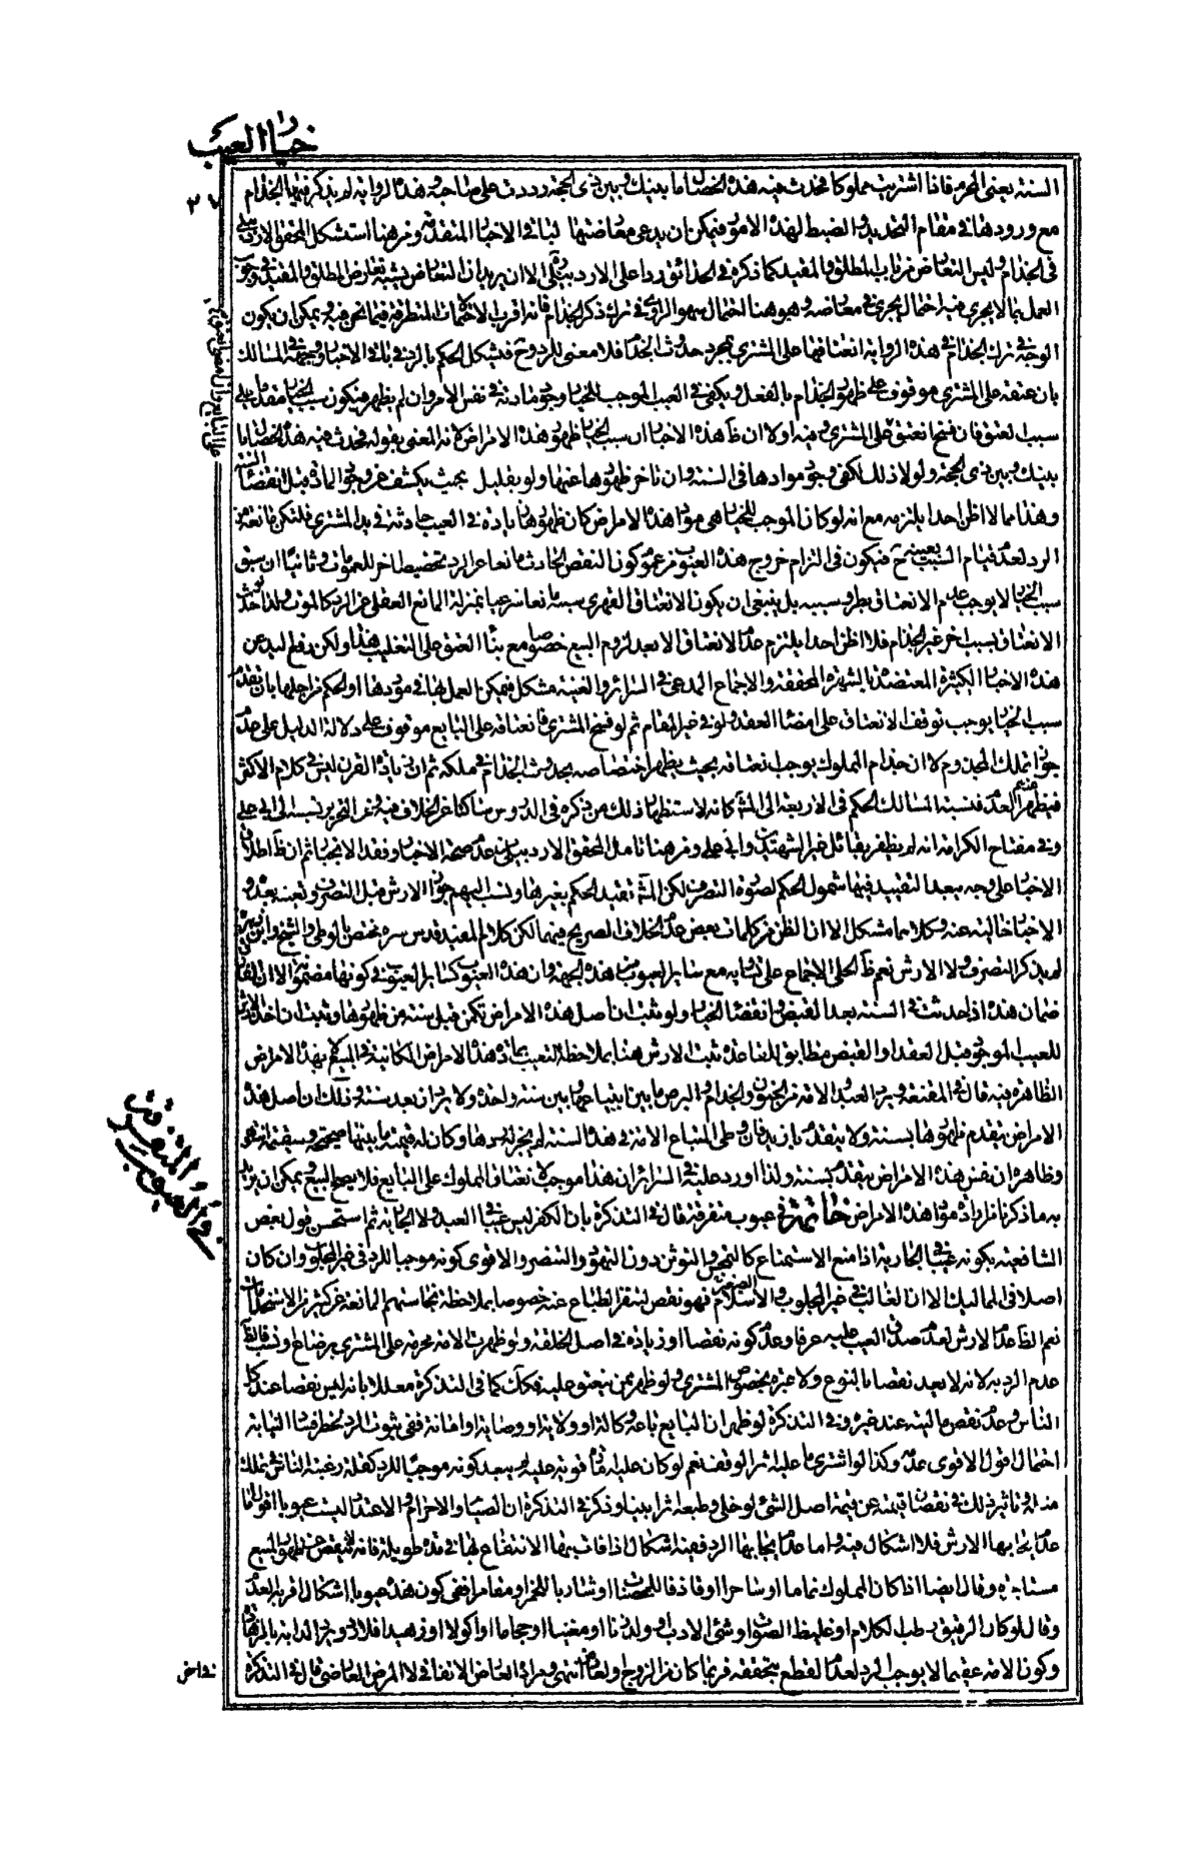 خيار العيب
السنة يعني المحرم فاذا اشتريت مملوكا فحدث فيه هذه الخصال ما بينك وبين ذى الحجة رددت على صاحبه وهذه الرواية لم يذكر فيها الجذام
مع ورودها في مقام التحديد والضبط لهذه الامور فيمكن ان يدعى معارضتها لباقى الاخبار المتقدمة ومن هنا استشكل المحقق الاردبيلى
فى الجذام وليس التعارض من باب المطلق والمقيد كما ذكره في الحدائق ردا على الاردبيلى ره الا ان يريد ان التعارض يشبه تعارض المطلق والمقيد في وجوب
العمل بما لا يجرى فيه احتمال يجرى في معارضه وهو هنا احتمال سهو الراوى في ترك ذكر الجذام فانه اقرب الاحتمالات المتطرقة فيما نحن فيه ويمكن ان يكون
الوجه في ترك الجذام في هذه الرواية انعتاقها على المشترى بمجرد حدوث الجذام فلا معنى للرد وح فيشكل الحكم بالرد في باقى الاخبار ووجهه في المسالك
بان عتقه على المشترى موقوف على ظهور الجذام بالفعل ويكفى في العيب الموجب للخيار وجود مادته في نفس الامر وان لم يظهر فيكون سبب الخيار مقدما على
سبب العتق فان فسخ انعتق على المشترى وفيه اولا ان ظ هذه الاخبار ان سبب الخيار ظهور هذه الامراض لانه المعنى بقوله فحدث فيه هذه الخصال ما
بينك وبين ذى الحجة ولولا ذلك لكفى وجود موادها فى السنة وان تاخر ظهورها عنها ولو بقليل بحيث يكشف عن وجود المادة قبل انقضاء السنة
وهذا مما لا اظن احدا يلتزمه مع انه لو كان الموجب للخيار هى مواد هذه الامراض كان ظهورها زيادة في العيب حادثة في يد المشترى فلتكن مانعة من
الرد لعدم قيام الشئ بعينه ح فيكون فى التزام خروج هذه العيوب من عموم كون النقص الحادث مانعا عن الرد تخصيصا اخر للعمومات وثانيا ان سبق
سبب الخيار لا يوجب عدم الانعتاق بطرو سببه بل ينبغى ان يكون الانعتاق القهرى بسببه مانعا شرعيا بمنزلة المانع العقلى عن الرد كالموت ولذا لو حدث
الانعتاق بسبب اخر غير الجذام فلا اظن احدا يلتزم عدم الانعتاق الا بعد لزوم البيع خصوصا مع بناء العتق على التغليب هذا ولكن رفع اليد عن
هذه الاخبار الكثيرة المعتضدة بالشهرة المحققة والاجماع المدعى في السرائر والغنية مشكل فيمكن العمل بها في موردها او الحكم من اجلها بان تقدم
سبب الخيار يوجب توقف الانعتاق على امضاء العقد ولو في غير المقام ثم لو فسخ المشترى فانعتاقه على البايع موقوف على دلالة الدليل على عدم
جواز تملك المجذوم لا ان جذام المملوك يوجب انعتاقه بحيث يظهر اختصاصه بحدوث الجذام في ملكه ثم ان زيادة القرن ليس في كلام الاكثر
فيظهر منهم العدم فنسبة المسالك الحكم فى الاربعة الى المشهور كانه لاستظهار ذلك من ذكره فى الدروس ساكتا عن الخلاف فيه وعن التحرير نسبته الى ابى على
وفي مفتاح الكرامة انه لم يظفر بقائل غير الشهيدين وابى على ومن هنا تامل المحقق الاردبيلى من عدم صحة الاخبار وفقد الانجبار ثم ان ظ اطلاق
الاخبار على وجه يبعد التقييد فيها شمول الحكم لصورة التصرف لكن المشهور تقييد الحكم بغيرها ونسب اليهم جواز الارش قبل التصرف وتعينه بعده و
الاخبار خالية عنه وكلاهما مشكل الا ان الظن من كلمات بعض عدم الخلاف الصريح فيهما لكن كلام المفيد قدس سره مختص بالوطى والشيخ وابن زهرة
لم يذكر التصرف ولا الارش نعم ظ الحلى الاجماع على تساويه مع ساير العيوب من هذه الجهة وان هذه العيوب كساير العيوب في كونها مضمونة الا ان الفارق
ضمان هذه اذا حدثت في السنة بعد القبض وانقضاء الخيار ولو ثبت ان اصل هذه الامراض تكمن قبل سنة من ظهورها وثبت ان اخذ الارش
للعيب الموجود قبل العقد او القبض مطابق للقاعدة ثبت الارش هنا بملاحظة التعيب بمادة هذه الامراض الكائنة في المبيع لا بهذه الامراض
الظاهرة فيه قال في المقنعة ويرد العبد والامة من الجنون والجذام والبرص ما بين ابتياعهما وبين سنة واحدة ولا يردان بعد سنة وذلك ان اصل هذه
الامراض يتقدم ظهورها بسنة ولا يتقدم بازيد فان وطى المبتاع الامة في هذه السنة لم يجز له ردها وكان له قيمة ما بينها صحيحة وسقيمة انتهى
وظاهره ان نفس هذه الامراض تتقدم بسنة ولذا اورد عليه في السرائر ان هذا موجب لانعتاق المملوك على البايع فلا يصح البيع ويمكن ان يريد
به ما ذكرنا من ارادة مواد هذه الامراض خاتمة في عيوب متفرقة قال في التذكرة بان الكفر ليس عيبا في العبد ولا الجارية ثم استحسن قول بعض
الشافعية بكونه عيبا في الجارية اذا منع الاستمتاع كالتمجس والتوثن دون التهود والتنصر والاقوى كونه موجبا للرد في غير المجلوب وان كان
اصلا فى المماليك الا ان الغالب في غير المجلوب الاسلام فهو نقص لتنفر الطباع عنه خصوصا بملاحظة نجاستهم المانعة عن كثير من الاستعمالات
نعم الظ عدم الارش لعدم صدق العيب عليه عرفا وعدم كونه نقصا او زيادة في اصل الخلقة ولو ظهرت الامة محرمة على المشترى برضاع او نسب فالظ
عدم الرد به لانه لا يعد نقصا بالنوع ولا عبرة بخصوص المشترى ولو ظهر ممن ينعتق عليه فكك كما فى التذكرة معللا بانه ليس نقصا عند كل
الناس وعدم نقص ماليته عند غيره وفي التذكرة لو ظهر ان البايع باعه وكالة او ولاية او وصاية او امانة ففى ثبوت الرد لخطر فساد النيابة
احتمال اقول الاقوى عدمه وكذا لو اشترى ما عليه اثر الوقف نعم لو كان عليه اثار قوية عليه لم يبعد كونه موجبا للرد لقلة رغبة الناس في تملك
مثله وتاثير ذلك في نقصان قيمته عن قيمة اصل الشئ لو خلى وطبعه اثرا بينا وذكر في التذكرة ان الصيام والاحرام والاعتداد ليست عيوبا اقول اما
عدم ايجابها الارش فلا اشكال فيه واما عدم ايجابها الرد ففيه اشكال اذا فات بها الانتفاع بها في مدة طويلة فانه لا ينقص عن ظهور المبيع
مستاجرا وقال ايضا اذا كان المملوك نماما او ساحرا او قاذفا للمحصنات او شاربا للخمر او مقامرا ففى كون هذه عيوبا اشكال اقربه العدم
وقال لو كان الرقيق رطب الكلام او غليظ الصوت او سئ الادب او ولد زنا او مغنيا او حجاما او اكولا او زهيدا فلا رد وترد الدابة بالزهادة
وكون الامة عقيما لا يوجب الرد لعدم القطع بتحققه فربما كان من الزوج او لعارض انتهى ومراده العارض الاتفاقى لا المرض العارضى قال في التذكرة
في العيوب المتفرقة